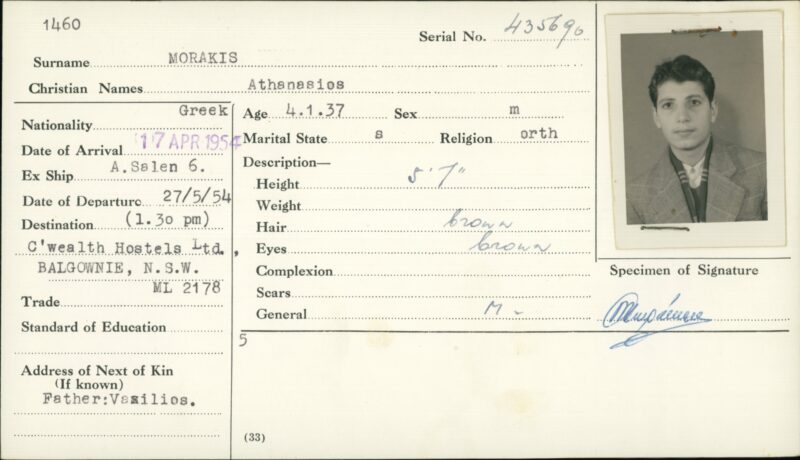 1460
Serial No. 435690
Surname MORAKIS
Christian Names Athanasios
Nationality Greek
Date of Arrival 17 APR 1954
Ex Ship A.Salen 6.
Date of Departure 27/5/54
Destination (1.30 pm)
C'wealth Hostels Ltd.,
BALGOWNIE, N.S.W.
ML 2178
Trade
Standard of Education
Address of Next of Kin
(If known)
Father:Vasilios.
Age 4.1.37 Sex m
Marital State s Religion orth
Description—
Height 5'7"
Weight
Hair brown
Eyes brown
Complexion
Scars
General M -
5
(33)
Specimen of Signature